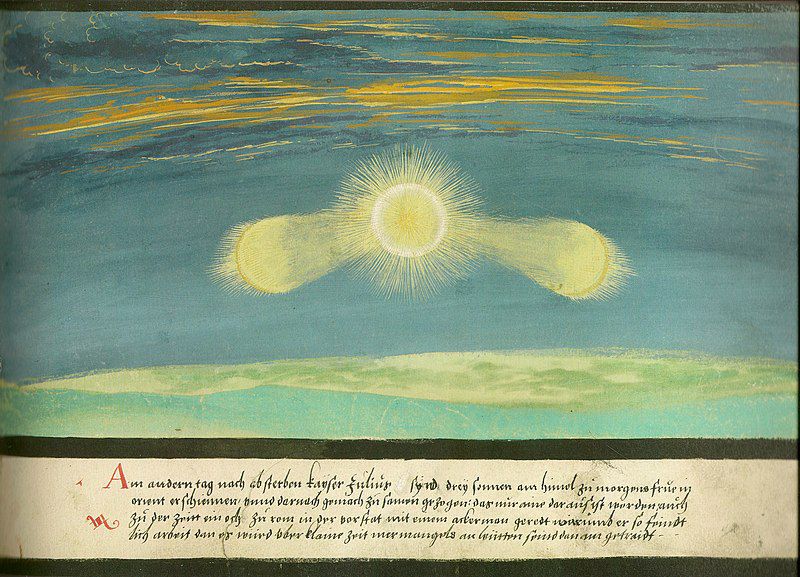 Am andern tag nach absterben kayser Julius synd drey sonnen am himel zu morgens frue in
orient erschiennen vnnd darnach gemach zu samen gezogen das nur ane darauß ist worden auch
zu der zeyt ein ochs zu rom in der vorstat mit einem ackerman geredt warumb er so feindt
lich arbeit dan es wurd vber klaine zeit mer mangels an leutten seind dan am getraidt